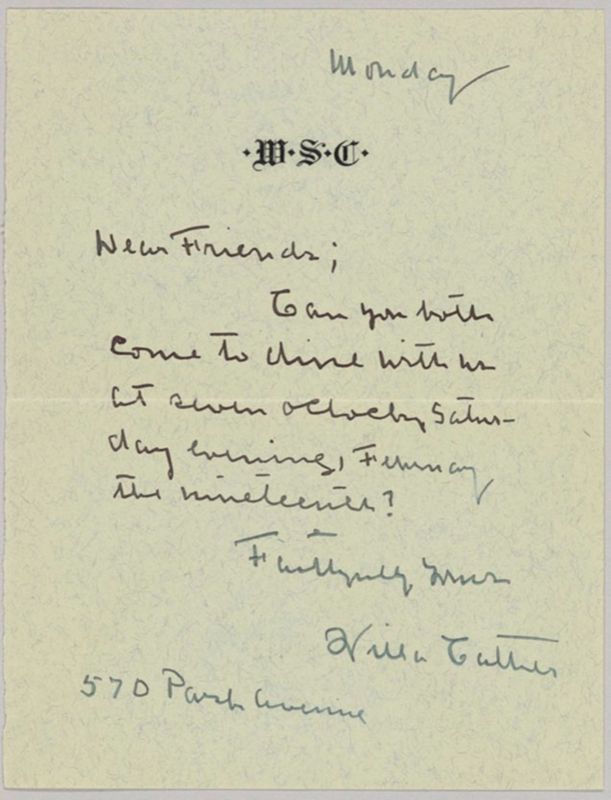 Monday
·W·S·C·
Dear Friends;
Can you both
come to dine with us
at seven oclock, Satur-
day evening, February
the nineteenth?
Faithfully yours
Willa Cather
570 Park Avenue